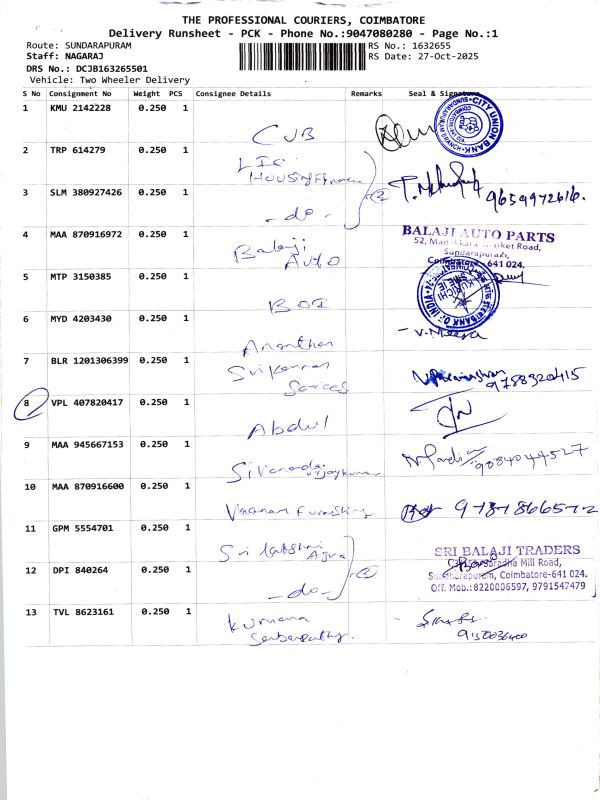 THE PROFESSIONAL COURIERS, COIMBATORE
Delivery Runsheet - PCK - Phone No.:9047080280 - Page No.:1
Route: SUNDARAPURAM RS No.: 1632655
Staff: NAGARAJ RS Date: 27-Oct-2025
DRS No.: DCJB163265501
Vehicle: Two Wheeler Delivery
S No Consignment No Weight PCS Consignee Details Remarks Seal & Signature
1 KMU 2142228 0.250 1
CUB
CITY UNION BANK
2 TRP 614279 0.250 1
LIC
Housing Finance
3 SLM 380927426 0.250 1
-do- 2
9659972616.
4 MAA 870916972 0.250 1
Balaji
Auto
BALAJI AUTO PARTS
52, Market Road,
Sundarapuram,
Coimbatore-641 024.
5 MTP 3150385 0.250 1
BOI
BANK OF INDIA
6 MYD 4203430 0.250 1
Ananthan
- V. Meena
7 BLR 1201306399 0.250 1
Srikannan
9788920415
8 VPL 407820417 0.250 1
Abdul
9 MAA 945667153 0.250 1
Vijaykumar
9084044527
10 MAA 870916600 0.250 1
Furnishing
9787866572
11 GPM 5554701 0.250 1
Sri Lakshmi
Agro
SRI BALAJI TRADERS
Mill Road,
12 DPI 840264 0.250 1
-do- 2
Sundarapuram, Coimbatore-641 024.
Off. Mob.:8220006597, 9791547479
13 TVL 8623161 0.250 1
Kumara